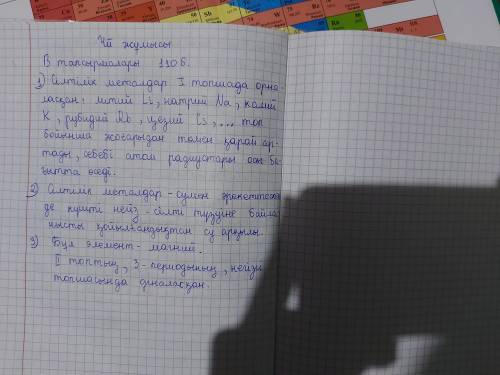 Үй жұмысы
В тапсырмалары 110 б.
1) Сілтілік металдар I топшада орна-
ласқан: литий Li, натрий Na, калий
K, рубидий Rb, цезий Cs, ... топ
бойынша жоғарыдан төмен қарай ар-
тады, себебі атом радиустары осы ба-
ғытта өседі.
2) Сілтілік металдар - сумен әрекеттескен
де күшті негіз - сілті түзуіне байла-
нысты қойылғандықтан су арқылы.
3) Бұл элемент - магний.
II топтың, 3 - периодының, негізгі
топшасында орналасқан.